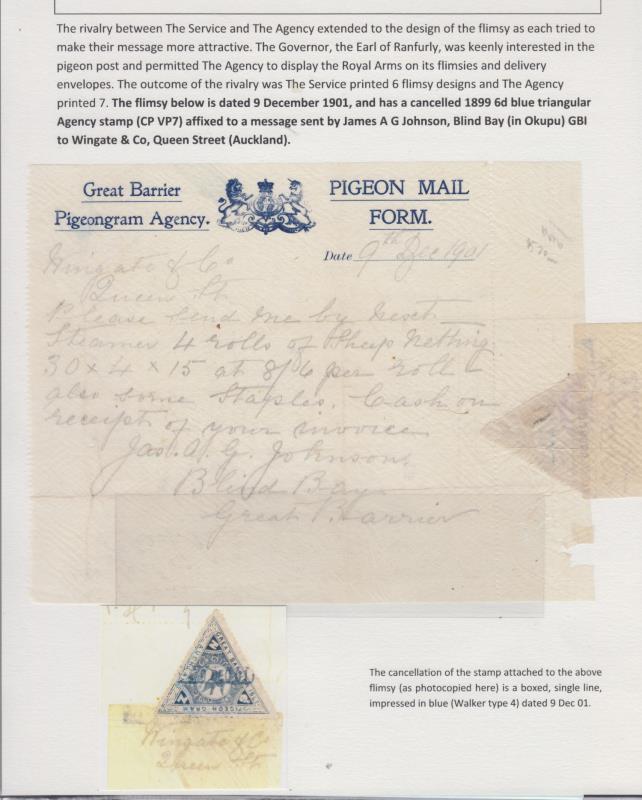 The rivalry between The Service and The Agency extended to the design of the flimsy as each tried to
make their message more attractive. The Governor, the Earl of Ranfurly, was keenly interested in the
pigeon post and permitted The Agency to display the Royal Arms on its flimsies and delivery
envelopes. The outcome of the rivalry was The Service printed 6 flimsy designs and The Agency
printed 7. The flimsy below is dated 9 December 1901, and has a cancelled 1899 6d blue triangular
Agency stamp (CP VP7) affixed to a message sent by James A G Johnson, Blind Bay (in Okupu) GBI
to Wingate & Co, Queen Street (Auckland).
Great Barrier
Pigeongram Agency.
PIGEON MAIL
FORM.
Date 9th Dec 1901
Wingate & Co
Queen St
Please send me by next
Steamer 4 rolls of Sheep Netting
30 x 4 x 15 at 8/6 per roll
also some Staples. Cash on
receipt of your invoice
Jas. A. G. Johnson
Blind Bay
Great Barrier
GREAT BARRIER
PIGEON GRAM
Wingate & Co
Queen St
The cancellation of the stamp attached to the above
flimsy (as photocopied here) is a boxed, single line,
impressed in blue (Walker type 4) dated 9 Dec 01.